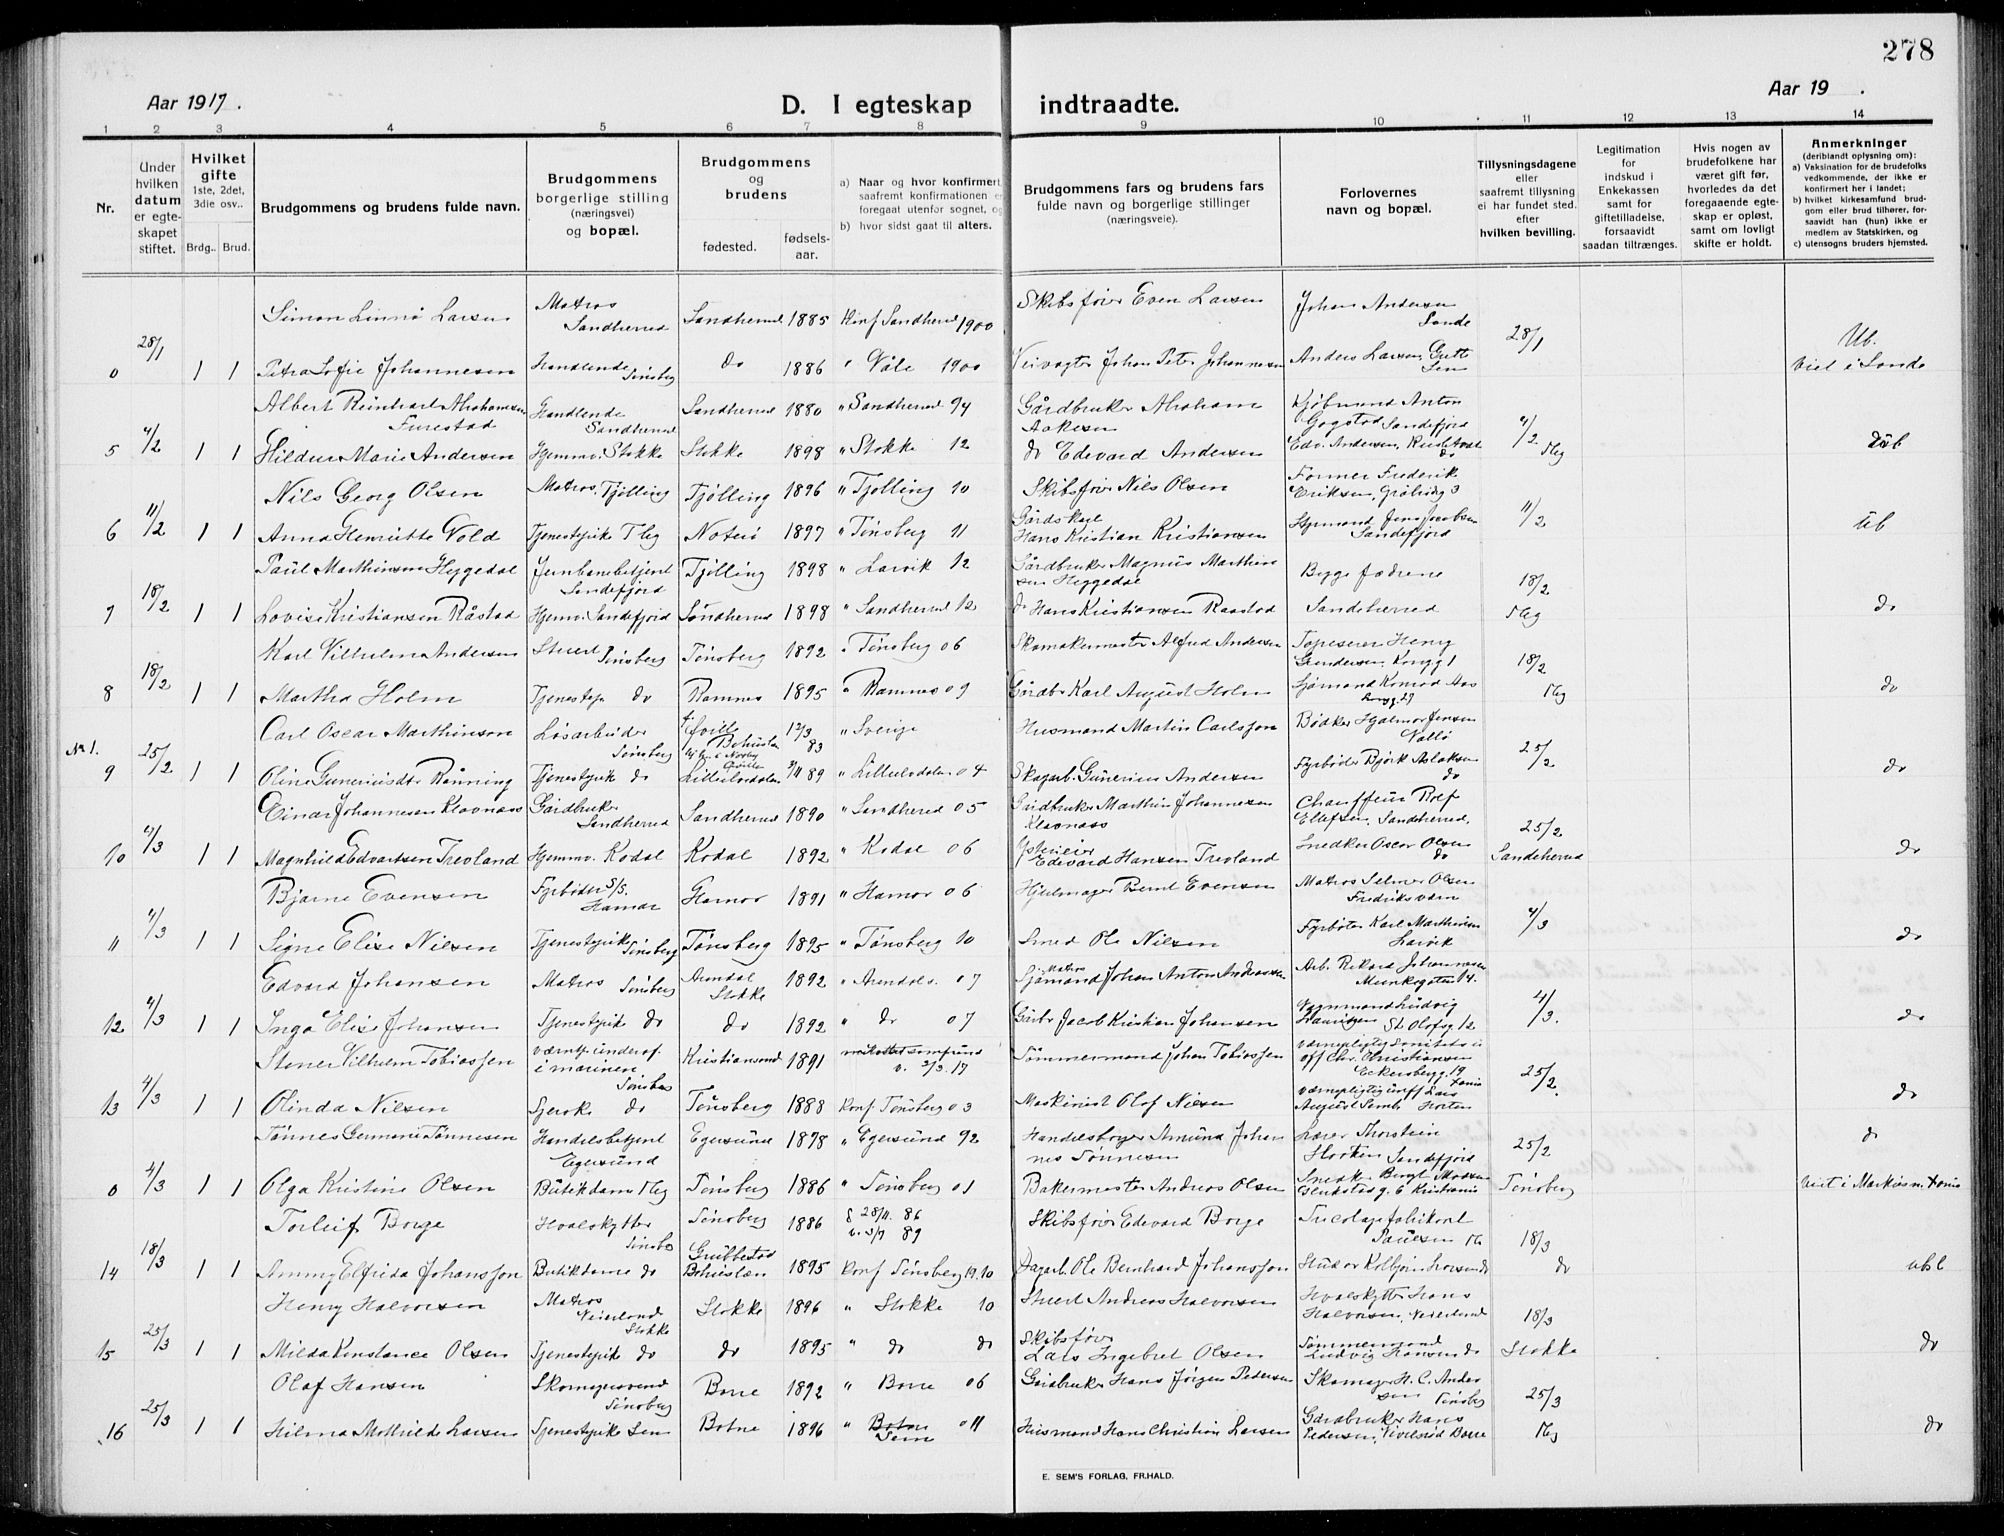 278
Aar 1917.
D. I egteskap indtraadte.
Aar 19 .
1 2 3 4 5 6 7 8 9 10 11 12 13 14
Nr.
Under hvilken datum er egteskapet stiftet.
Hvilket gifte 1ste, 2det, 3die osv..
Brdg.. Brud.
Brudgommens og brudens fulde navn.
Brudgommens borgerlige stilling (næringsvei) og bopæl.
Brudgommens og brudens
fødested. fødsels-aar.
a) Naar og hvor konfirmert, saafremt konfirmationen er foregaat utenfor sognet, og
b) hvor sidst gaat til alters.
Brudgommens fars og brudens fars fulde navn og borgerlige stillinger (næringsveie).
Forlovernes navn og bopæl.
Tillysningsdagene eller saafremt tillysning ei har fundet sted. efter hvilken bevilling.
Legitimation for indskud i Enkekassen samt for giftetilladelse, forsaavidt saadan tiltrænges.
Hvis nogen av brudefolkene har været gift før, hvorledes da det foregaaende egteskap er opløst, samt om lovligt skifte er holdt.
Anmerkninger
(deriblandt oplysning om):
a) Vaksination for de brudefolks vedkommende, der ikke er konfirmert her i landet;
b) hvilket kirkesamfund brudgom eller brud tilhører, forsaavidt han (hun) ikke er medlem av Statskirken, og
c) utensogns bruders hjemsted.
Simon Linnö Larsen Matros Sandherred Sandherred 1885 Konf Sandherred 1900 Skibsfører Even Larsen Johan Andersen Sande
0 28/1 1 1 Petra Sofie Johannesen Handlende Tönsberg do 1886 " Våle 1900 Veivogter Johan Peter Johannesen Anders Larsen, Sem 28/1 Ub. Viet i Sande
Albert Reinhart Abrahamsen Furestad Handlende Sandherred Sandherred 1880 " Sandherred 94 Gårdbruker Abraham Aakesen Kjöbmand Anton Gogstad Sandefjord
5 4/2 1 1 Hildur Marie Andersen Hjemmv. Stokke Stokke 1898 " Stokke 12 do Edevard Andersen Edv. Andersen, do 4/2 Tbg ub
Nils Georg Olsen Matros, Tjölling Tjölling 1896 " Tjölling 10 Skibsfører Nils Olsen Former Frederik Eriksen, 3
6 11/2 1 1 Anna Henriette Vold Tjenestepike Tbg Nöterö 1897 " Tönsberg 11 Gårdskarl Hans Kristian Kristiansen Styrmand Jens Jacobsen Sandefjord 11/2 ub
Paul Marthinsen Heggedal Jernbanebetjent Sandefjord Tjölling 1898 " Larvik 12 Gårdbruker Magnus Marthinsen Heggedal Begge fædrene
7 18/2 1 1 Lovise Kristiansen Råstad Hjemmv. Sandefjord Sandherred 1898 " Sandherred 12 do Hans Kristiansen Raastad Sandeherred 18/2 Tbg do
Karl Vilhelm Andersen Stuert Tönsberg Tönsberg 1892 " Tönsberg 06 Skomakermester Alfred Andersen Tapetserer Henry Gundersen, Kongg 1
8 18/2 1 1 Martha Holm Tjenestep do Ramnes 1895 " Ramnes 09 Gårdbr Karl August Holm Sjömand Konrad Aas Kongg. 29 18/2 Tbg do
Carl Oscar Marthinson Lösarbeider Tönsberg Qville Bohuslen 12/3 83 " Sverige Husmand Martin Carlsson Bödker Hjalmar Jensen Vallö
No 1. 9 25/2 1 1 Oline Guneriusdtr Rönning Tjenestepike do Lilleelvdalen 3/11 89 " Lilleelvdalen 04 Skogarb. Gunerius Andersen Fyrböder Björk Aslaksen do 25/2 do
Einar Johannesen Klavnæss Gårdbruker Sandherred Sandherred 1890 " Sandherred 05 Gårdbruker Marthin Johannesen Klavnæss Chauffeur Rolf Ellefsen, Sandeherred,
10 4/3 1 1 Magnhild Edvartsen Trevland Hjemmv. Kodal Kodal 1892 " Kodal 06 Edevard Hansen Trevland Snedker Oscar Olsen do 25/2 Sandeherred do
Bjarne Evensen Fyrböder S/S. Hamar Hamar 1891 " Hamar 06 Hjulmager Bernt Evensen Matros Selmer Olsen Fredriksværn
11 4/3 1 1 Signe Elise Nilsen Tjenestepike Tönsberg Tönsberg 1895 " Tönsberg 10 Smed Ole Nilsen Fyrböter Karl Marthinsen Larvik 4/3 do
Edvard Johansen Matros Tönsberg Arendal Stokke 1892 " Arendal 07 Matros Sjömand Johan Anton Andreassen Arb. Rikard Johannesen Munkegaten 14.
12 4/3 1 1 Inga Elise Johansen Tjenestepik do do 1892 " do 07 Gårbr Jacob Kristian Johansen Vognmand Ludvig St. Olofsg. 12 4/3. do
Stener Vilhelm Tobiassen værnep underof. i marinen Tönsberg Kristiansand 1891 v. 2/3. 17 Tömmermand Johan Tobiassen værnepligtig off Chr. Christiansen Eckersbergg. 19 Xania
13 4/3 1 1 Olinda Nilsen Syerske do Tönsberg 1888 Konf Tönsberg 03 Maskinist Olof Nilsen værnepligtig uoff Lars August Horten 25/2. do
Tönnes Germani Tönnesen Handelsbetjent Egersund Egersund 1878 " Egersund 92 Handelsborger Amund Johannes Tönnesen Lærer Thorstein Sandefjord do
0 4/3 1 1 Olga Kristine Olsen Butikdame Tbg Tönsberg 1886 " Tönsberg 01 Bakermester Andreas Olsen Snedk. Bengt Madsen g. 6 Kristiania 25/2 Tönsberg Viet i Markus m. Xania
Torleif Borge Hvalskytter Tönsberg Tönsberg 1886 f 28/11. 86 v. 5/9 89 Skibsfører Edevard Borge Tricotagefabrikant Tbg
14 18/3 1 1 Ammy Elfrida Johansson Butikdame do Grebbestad Bohuslæn 1895 Konf Tönsberg 1910 Dagarb. Ole Bernhard Johansson Stud. Kolbjörn Larsen do 18/3 do ubl
Henry Halvorsen Matros Veierland Stokke Stokke 1896 " Stokke 10 Stuert Andreas Halvorsen Hvalskytter Hans Halvorsen, Veierland
15 25/3 1 1 Milda Konstance Olsen Tjenestepik do do 1895 " do do Skibsfører Lars Ingebret Olsen Tömmermand Ludvig Hansen do 18/3 Stokke do
Olaf Hansen Skomagersvend Tönsberg Borre 1892 " Borre 06 Gårdbruker Hans Jörgen Pedersen Skomager H. C. Andersen Tönsberg
16 25/3 1 1 Hilma Mathilde Larsen Tjenestepike Sem Botne 1896 " Botne Sem 011 Husmand Hans Christian Larsen Gårdbruker Hans Pedersen, Borre 25/3 Tbg do
E. SEM'S FORLAG, FR.HALD.